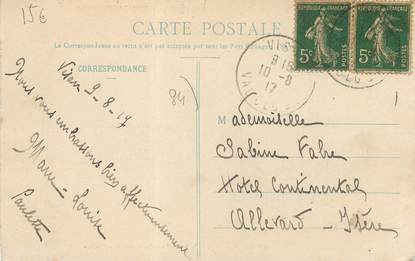 15€
CARTE POSTALE
La Correspondance au recto n'est pas acceptée par tous les Pays Etrangers
CORRESPONDANCE
RÉPUBLIQUE FRANÇAISE
5c
POSTES
RÉPUBLIQUE FRANÇAISE
5c
POSTES
10-8
17
84)
9-8-17
Nous vous embrassons bien affectueusement
Marie-Louise
Paulette
Mademoiselle
Sabine Fabre
Hotel Continental
Allevard - Isère